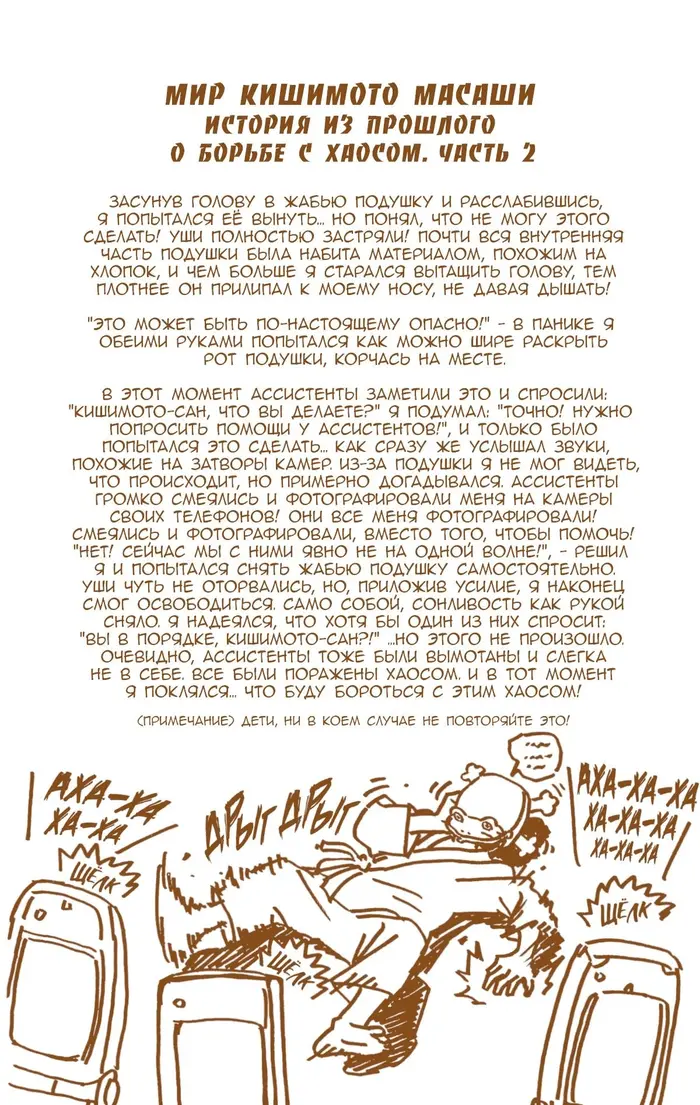 МИР КИШИМОТО МАСАШИ
ИСТОРИЯ ИЗ ПРОШЛОГО
О БОРЬБЕ С ХАОСОМ. ЧАСТЬ 2
ЗАСУНУВ ГОЛОВУ В ЖАБЬЮ ПОДУШКУ И РАССЛАБИВШИСЬ,
Я ПОПЫТАЛСЯ ЕЁ ВЫНУТЬ... НО ПОНЯЛ, ЧТО НЕ МОГУ ЭТОГО
СДЕЛАТЬ! УШИ ПОЛНОСТЬЮ ЗАСТРЯЛИ! ПОЧТИ ВСЯ ВНУТРЕННЯЯ
ЧАСТЬ ПОДУШКИ БЫЛА НАБИТА МАТЕРИАЛОМ, ПОХОЖИМ НА
ХЛОПОК, И ЧЕМ БОЛЬШЕ Я СТАРАЛСЯ ВЫТАЩИТЬ ГОЛОВУ, ТЕМ
ПЛОТНЕЕ ОН ПРИЛИПАЛ К МОЕМУ НОСУ, НЕ ДАВАЯ ДЫШАТЬ!
"ЭТО МОЖЕТ БЫТЬ ПО-НАСТОЯЩЕМУ ОПАСНО!" - В ПАНИКЕ Я
ОБЕИМИ РУКАМИ ПОПЫТАЛСЯ КАК МОЖНО ШИРЕ РАСКРЫТЬ
РОТ ПОДУШКИ, КОРЧАСЬ НА МЕСТЕ.
В ЭТОТ МОМЕНТ АССИСТЕНТЫ ЗАМЕТИЛИ ЭТО И СПРОСИЛИ:
"КИШИМОТО-САН, ЧТО ВЫ ДЕЛАЕТЕ?" Я ПОДУМАЛ: "ТОЧНО! НУЖНО
ПОПРОСИТЬ ПОМОЩИ У АССИСТЕНТОВ!", И ТОЛЬКО БЫЛО
ПОПЫТАЛСЯ ЭТО СДЕЛАТЬ... КАК СРАЗУ ЖЕ УСЛЫШАЛ ЗВУКИ,
ПОХОЖИЕ НА ЗАТВОРЫ КАМЕР. ИЗ-ЗА ПОДУШКИ Я НЕ МОГ ВИДЕТЬ,
ЧТО ПРОИСХОДИТ, НО ПРИМЕРНО ДОГАДЫВАЛСЯ. АССИСТЕНТЫ
ГРОМКО СМЕЯЛИСЬ И ФОТОГРАФИРОВАЛИ МЕНЯ НА КАМЕРЫ
СВОИХ ТЕЛЕФОНОВ! ОНИ ВСЕ МЕНЯ ФОТОГРАФИРОВАЛИ!
СМЕЯЛИСЬ И ФОТОГРАФИРОВАЛИ, ВМЕСТО ТОГО, ЧТОБЫ ПОМОЧЬ!
"НЕТ! СЕЙЧАС МЫ С НИМИ ЯВНО НЕ НА ОДНОЙ ВОЛНЕ!", - РЕШИЛ
Я И ПОПЫТАЛСЯ СНЯТЬ ЖАБЬЮ ПОДУШКУ САМОСТОЯТЕЛЬНО.
УШИ ЧУТЬ НЕ ОТОРВАЛИСЬ, НО, ПРИЛОЖИВ УСИЛИЕ, Я НАКОНЕЦ
СМОГ ОСВОБОДИТЬСЯ. САМО СОБОЙ, СОНЛИВОСТЬ КАК РУКОЙ
СНЯЛО. Я НАДЕЯЛСЯ, ЧТО ХОТЯ БЫ ОДИН ИЗ НИХ СПРОСИТ:
"ВЫ В ПОРЯДКЕ, КИШИМОТО-САН?!" ...НО ЭТОГО НЕ ПРОИЗОШЛО.
ОЧЕВИДНО, АССИСТЕНТЫ ТОЖЕ БЫЛИ ВЫМОТАНЫ И СЛЕГКА
НЕ В СЕБЕ. ВСЕ БЫЛИ ПОРАЖЕНЫ ХАОСОМ. И В ТОТ МОМЕНТ
Я ПОКЛЯЛСЯ... ЧТО БУДУ БОРОТЬСЯ С ЭТИМ ХАОСОМ!
(ПРИМЕЧАНИЕ) ДЕТИ, НИ В КОЕМ СЛУЧАЕ НЕ ПОВТОРЯЙТЕ ЭТО!
АХА-ХА
ХА-ХА
ДРЫГ ДРЫГ
АХА-ХА-ХА
ХА-ХА-ХА
ХА-ХА-ХА
ЩЁЛК
ЩЁЛК
ЩЁЛК